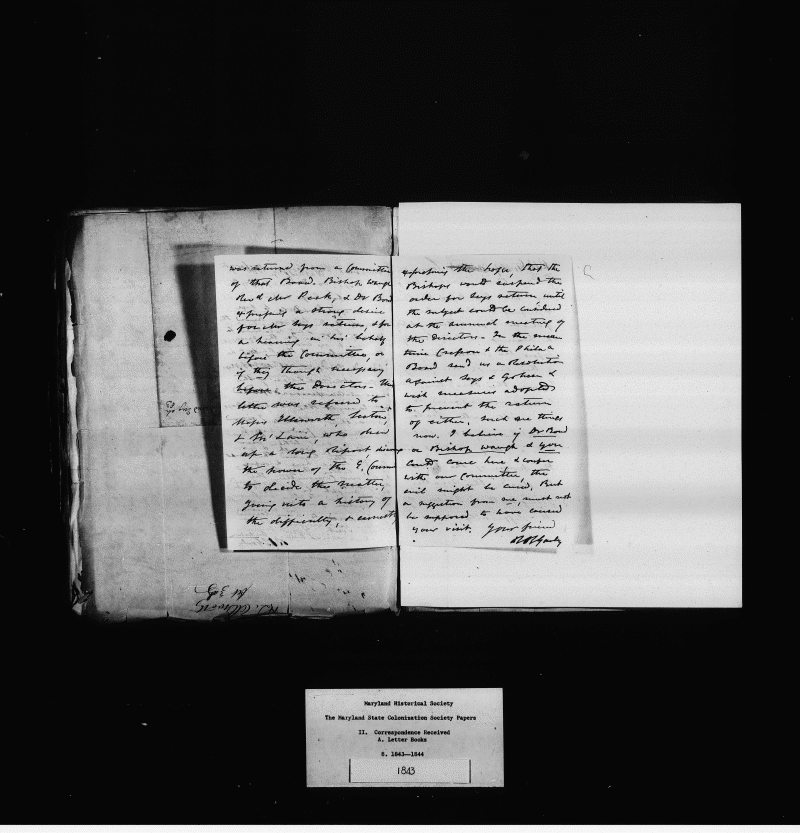 was returned from a Committee
of that Board. Bishop Waugh
Revd Mr Peck, & Dr Bond
expressing a strong desire
for Mr Seys return, & for
a hearing in his behalf
before the Committee, or
if they though necessary
before the Directors - the
letter was referred to
Messrs Ellsworth,
& Mr Lain, who drew
up a long Report
the power of the E.
to decide the matter,
going into a history of
the difficulty, &
expressing the hope, that the
Bishops would suspend the
order for Seys return until
the subject could be considered
at the annual meeting of
the Directors - In the mean
time Cresson & the Phila
Board send us a Resolution
against Seys & Goheen &
wish measures adopted
to prevent the return
of either, such are things
now. I believe if Dr Bond
or Bishop Waugh & you
could come here & confer
with our Committee, the
evil might be cured, But
a suggestion from me must not
be supposed to have caused
your visit. Your friend
RRGurley
Maryland Historical Society
The Maryland State Colonization Society Papers
II. Correspondence Received
A. Letter Books
8. 1843--1844
1843